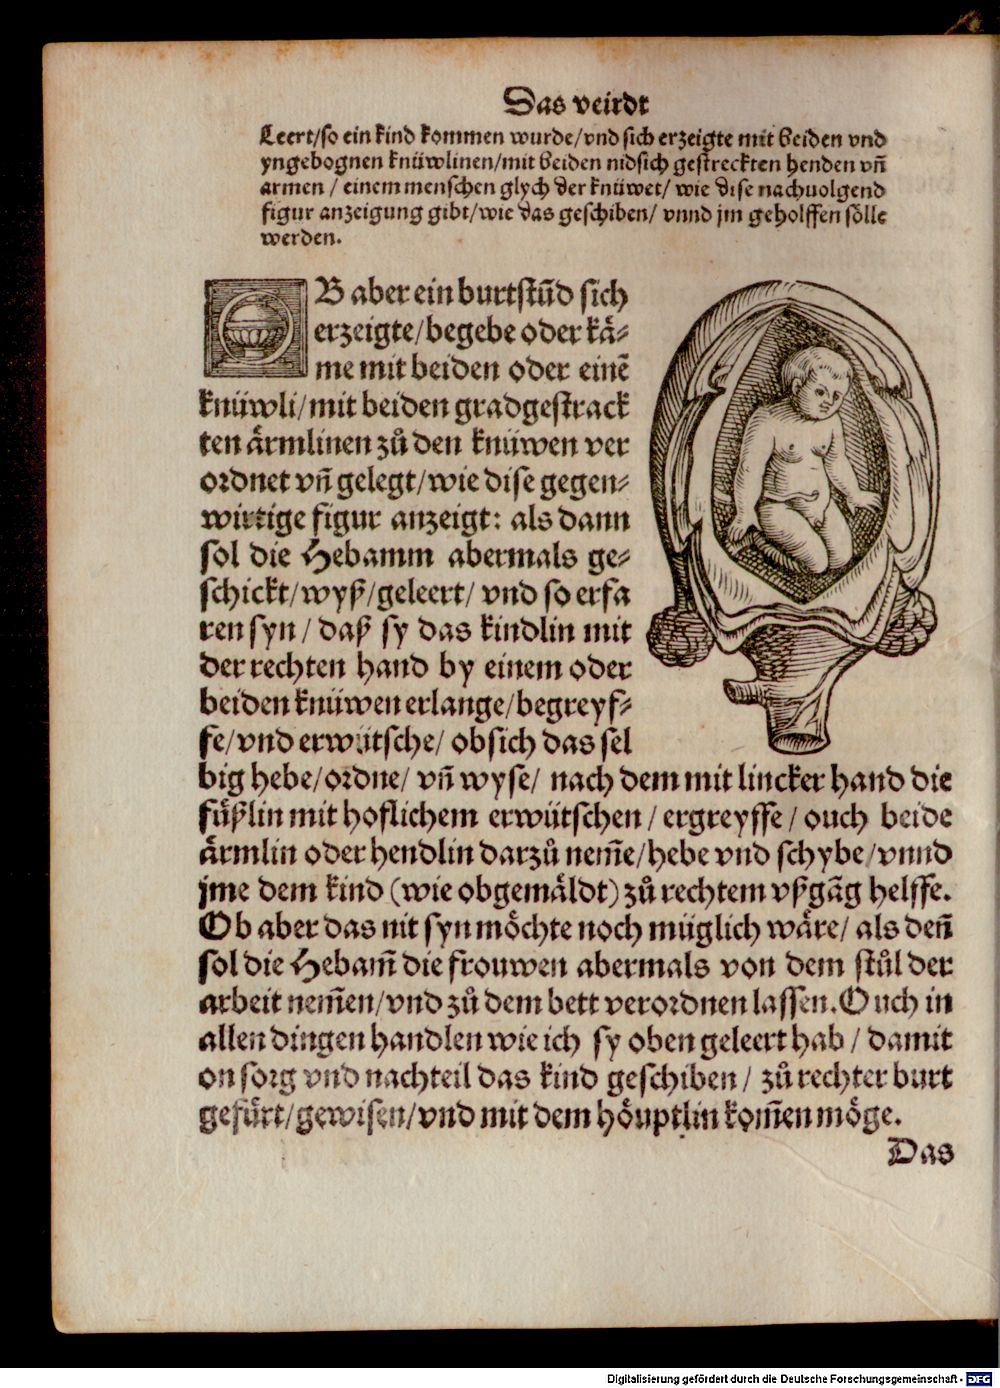 Das veirdt
Leert/so ein kind kommen wurde/vnd sich erzeigte mit beiden vnd
yngebognen knüwlinen/mit beiden nidsich gestreckten henden vñ
armen / einem menschen glych der knüwet/ wie dise nachuolgend
figur anzeigung gibt/wie das geschiben/ vnnd jm geholffen sölle
werden.
OB aber ein burtstũd sich
erzeigte/begebe oder kä⸗
me mit beiden oder einẽ
knüwli/mit beiden gradgestrack
ten ärmlinen zů den knüwen ver
ordnet vñ gelegt/wie dise gegen⸗
wirtige figur anzeigt: als dann
sol die Hebamm abermals ge⸗
schickt/wyß/geleert/ vnd so erfa
ren syn / daß sy das kindlin mit
der rechten hand by einem oder
beiden knüwen erlange/begreyf⸗
fe/vnd erwütsche/ obsich das sel
big hebe/ordne/ vñ wyse/ nach dem mit lincker hand die
füßlin mit hoflichem erwütschen / ergreyffe / ouch beide
ärmlin oder hendlin darzů nem̃e/hebe vnd schybe/vnnd
jme dem kind (wie obgemäldt) zů rechtem vßgãg helffe.
Ob aber das nit syn möchte noch müglich wäre/ als deñ
sol die Hebam̃ die frouwen abermals von dem stůl der
arbeit nem̃en/vnd zů dem bett verordnen lassen. Ouch in
allen dingen handlen wie ich sy oben geleert hab / damit
on sorg vnd nachteil das kind geschiben / zů rechter burt
gefürt/gewisen/vnd mit dem höuptlin kom̃en möge.
Das
Digitalisierung gefördert durch die Deutsche Forschungsgemeinschaft - DFG